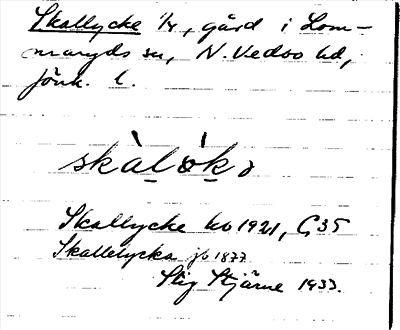 Skallycke 1/4, gård i Lom-
maryds sn, N. Vedbo hd,
Jönk. l.
skàlø̀kə
Skallycke hv 1921, G35
Skallelycka jb 1877
Stig Stjärne 1933.